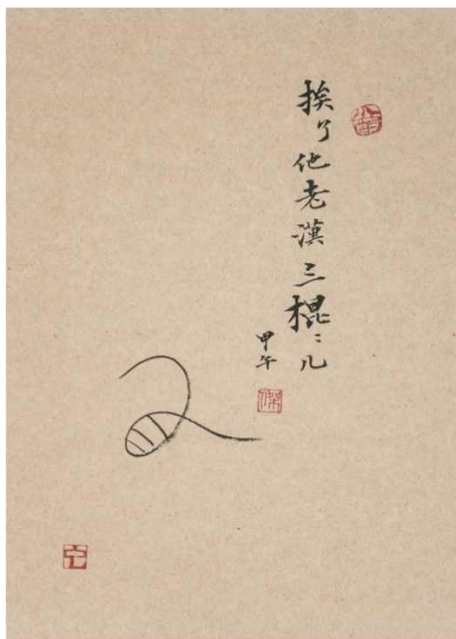 挨了他老漢三棍〻几
甲午